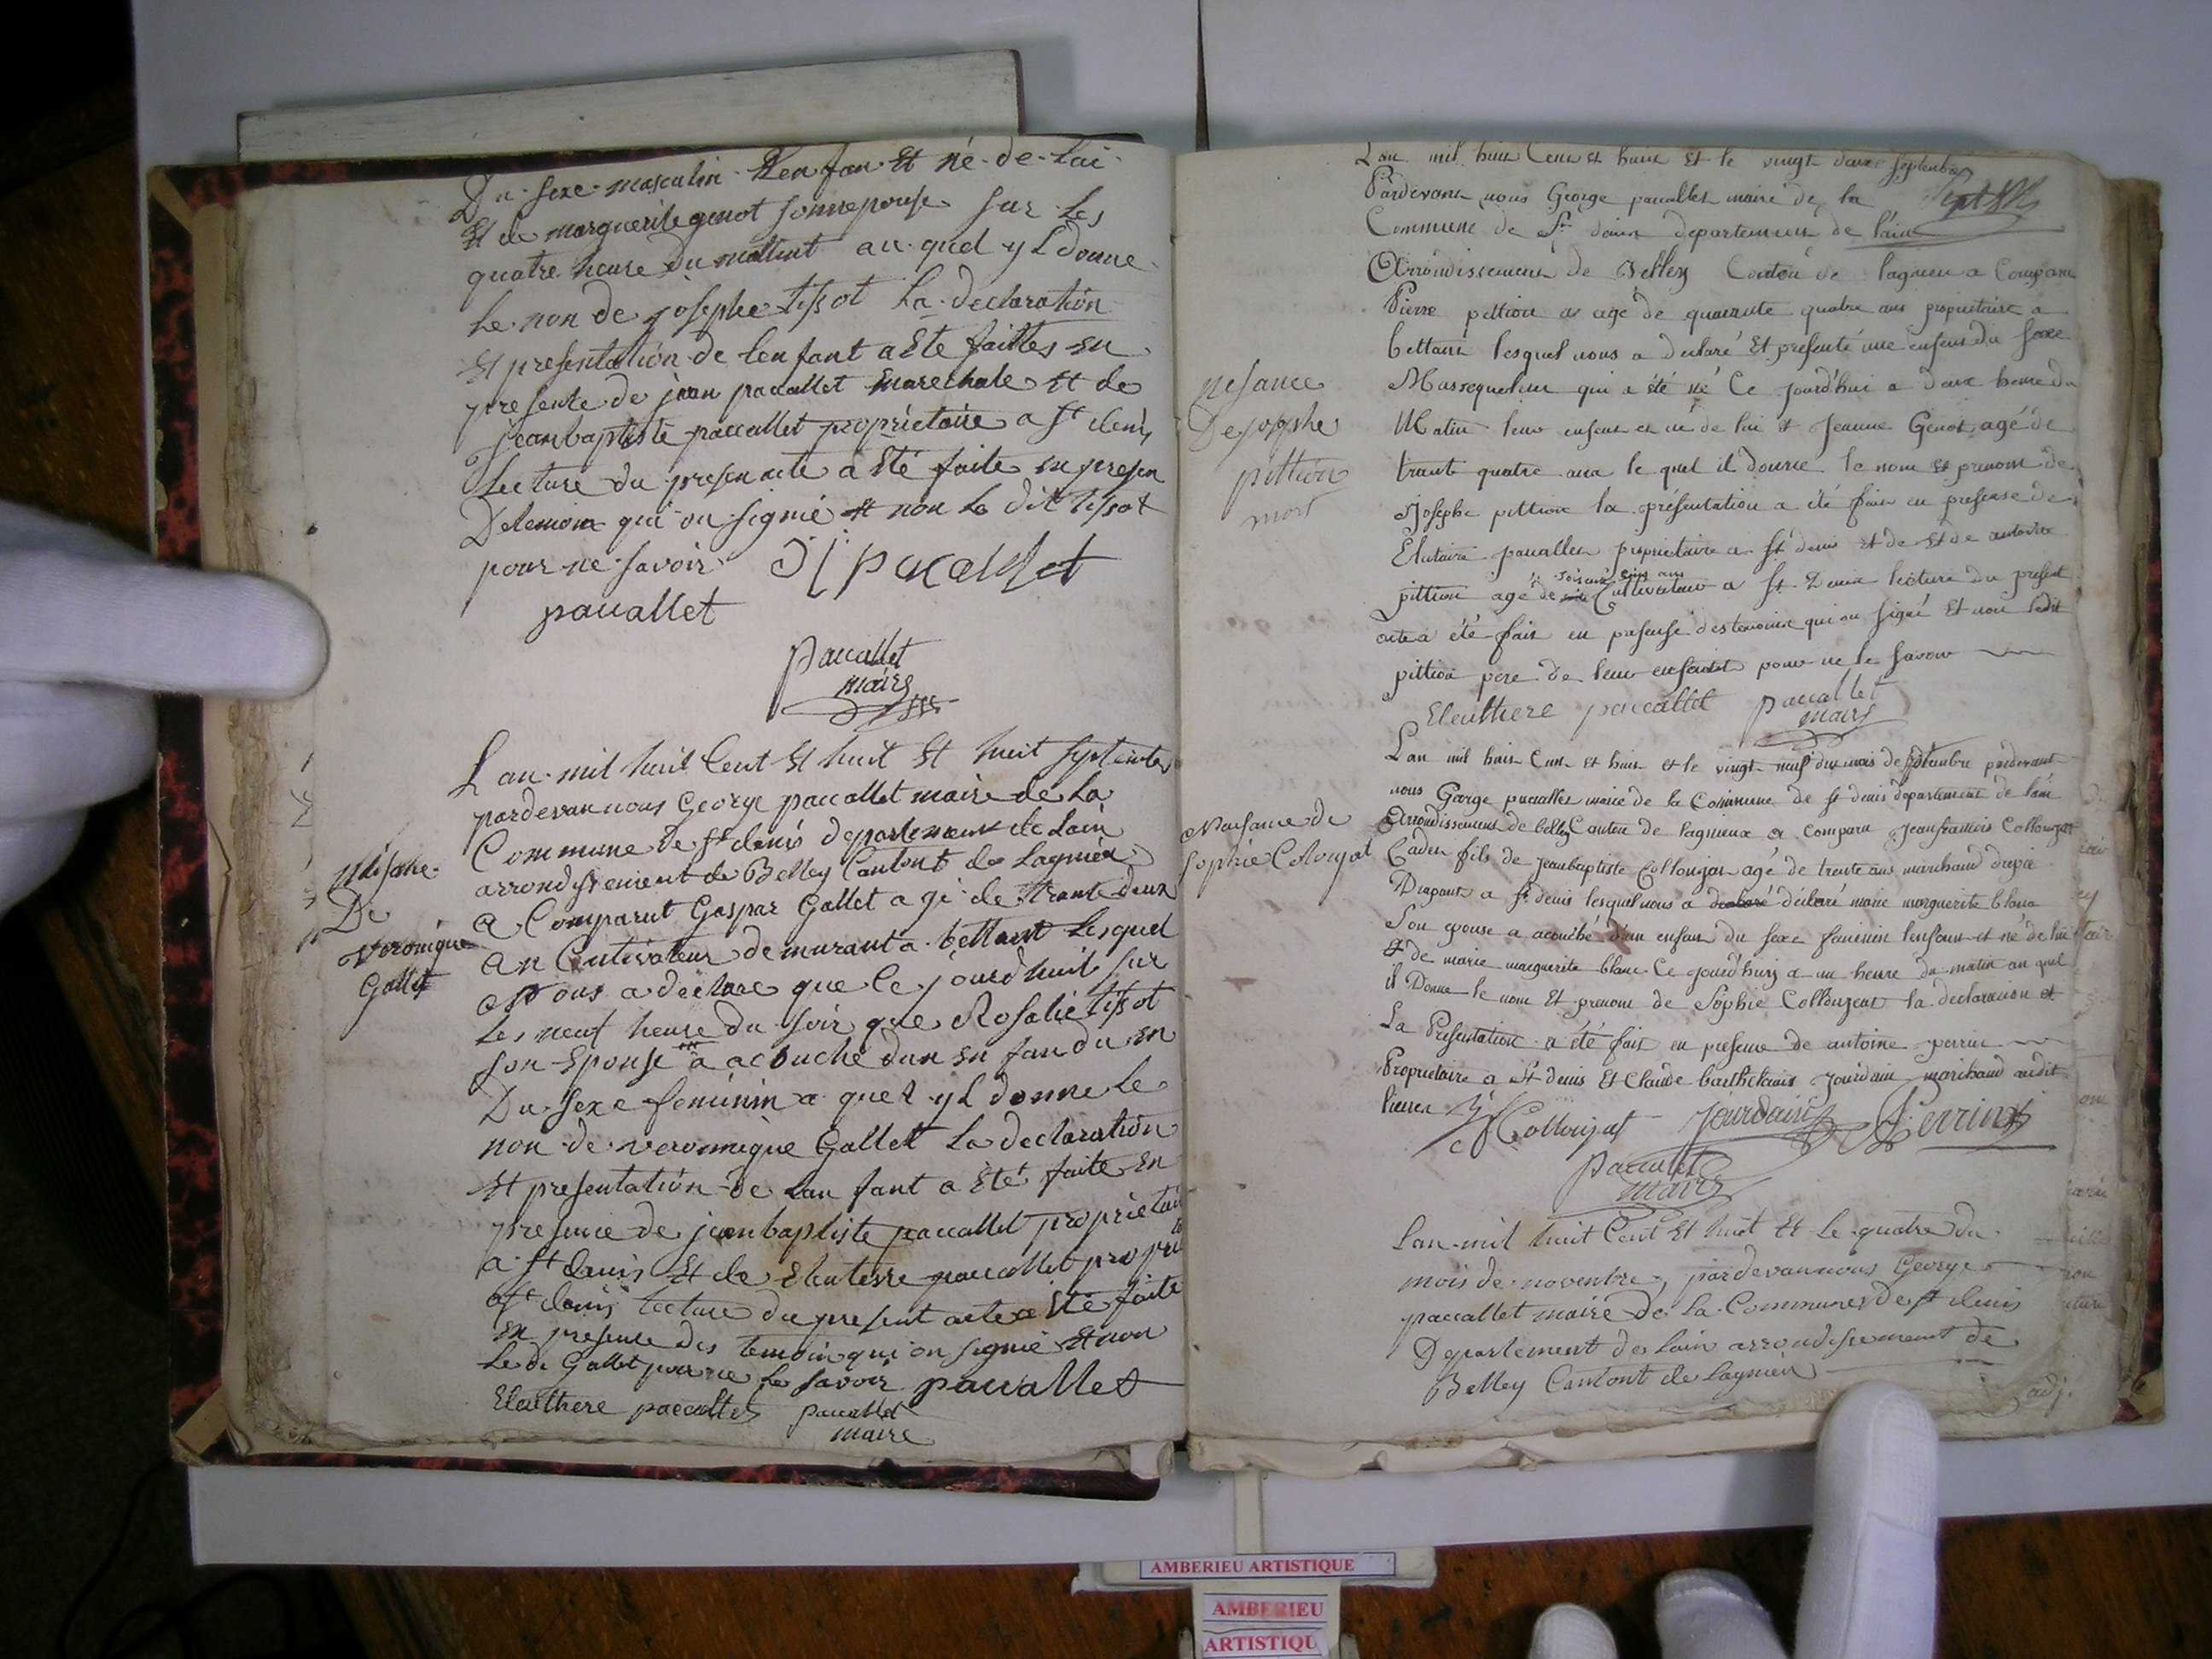 Du sexe masculin Len fan Et né de lui
Et de margueritegenot sonnepouse sur les
quatre heure du mattint au quel yl donne
Le non de josephe tissot La declaration
Et presentation de lenfant a Eté faittes en
presente de jean paccallet marechale et de
jeanbaptiste paccallet proprietaire a st denis
Lecture du presen acte a Eté faite en presen
Detemoin qui on signié et non Le dit tissot
pour ne savoir
paccallet
paccallet
maire
Lan mil huit Cent Et huit Et huit septembre
pardevan nous George paccallet maire de La
Commune de st denis departement de Lain
arrondissement de Belley Cantont de Lagnieu
a Comparut Gaspar Gallet agé de trante deux
an Cutivateur demurant a bettant Lesquel
Nous a déclare que Ce jourdhuit sur
Les neuf heure du soir que Rosalie tissot
son Epouse a acouche dun en fan du en
Du sexe feminin a quel yl donne Le
non de veronnique Gallet La declaration
Et presentation de Lan fant a Eté faite en
presence de jeanbaptiste paccallet proprietair
a st denis Et de Eleutesse paccallet propri
a st denis lecture du present acte a Eté faite
en presense des temoin qui on signié Et non
Le di Gallet pour ne Le savoir paccallet
Eleuthere paccallet paccallet
maire
De
veronique
Gallet
Lan mil huit Cent et huit Et le vingt deux septembre
Pardevant nous George paccallet maire de la
Commune de St denis departement de l'ain
Arrondissement de Belley Canton de lagnieu a Comparu
Pierre pittion agé de quarente quatre ans proprietaire a
bettant lesquel nous a declaré Et presenté une enfent du sexe
Massequelin qui a été né Ce jourd'hui a deux heure du
Matin leur enfent et né de lui et Jeanne Genot agé de
trente quatre ans le quel il donne le nom et prenom de
Josephe pittion la présentation a été fait en presense de
Elutaire paccallet proprietaire a st denis et de et de antoine
pittion agé de soisente cinq ans Cultivateur a St Denis lecture du present
acte a été fait en presense des temoin qui on signé Et non ledit
pittion pere de leur enfent pour ne le savoir
Eleuthere paccallet paccallet
maire
nesance
De josphe
pittion
mort
Lan mil huit Cent et huit et le vingt neuf du mois de septambre pardevant
nous George paccallet maire de la Commune de st denis departement de l'ain
Arrondissement de belley Canton de lagnieux a Comparu Jeanfrancois Collonjat
Cadet fils de jeanbaptiste Collonjat agé de trente ans marchand drapié
Drapant a st denis lesquel nous a déclaré marie marguerite blanc
Son epouse a acouché d'un enfant du sexe faminin lenfant et né de lui
Et de marie marguerite blanc Ce jourd'huy a un heure du matin au quel
il Donne le nom Et prenom de Sophie Collonjeat la declaration et
La Presentation a été fait en presense de antoine perrin
Proprietaire a St denis Et Claude barthelemis Jourdain marchand audit
lieux Collonjat Jourdain Perrin
paccallet
maire
Naisance de
Sophie Colonjat
Lan mil huit Cent Et huit Et Le quatre du
mois de novenbre, pardevan nous George
paccallet maire de La Commune de st denis
Departement de Lain arrondissement de
Belley Cantont de Lagnieu
AMBERIEU ARTISTIQUE
AMBERIEU
ARTISTIQU